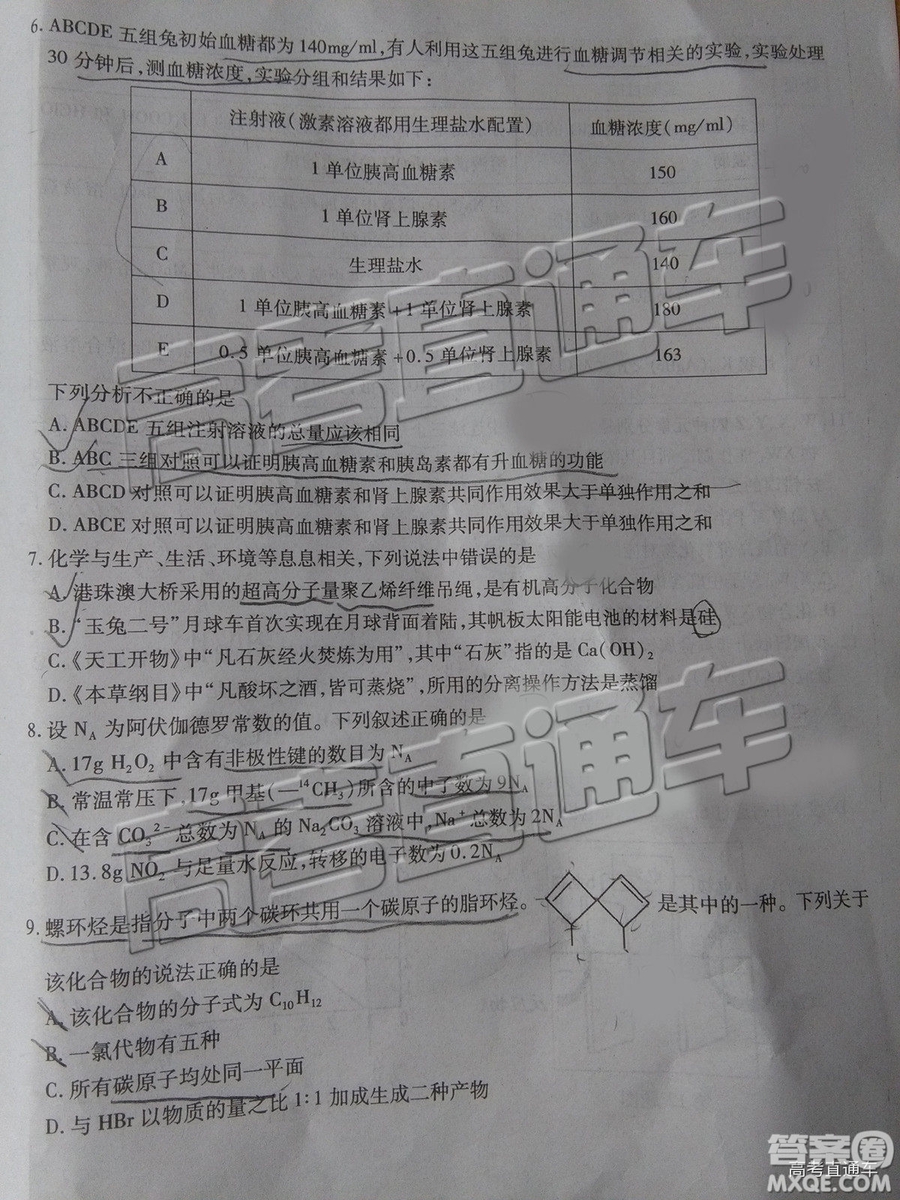 6. ABCDE 五组兔初始血糖都为 140mg/ml,有人利用这五组兔进行血糖调节相关的实验,实验处理
30 分钟后,测血糖浓度,实验分组和结果如下:
注射液(激素溶液都用生理盐水配置) 血糖浓度(mg/ml)
A 1 单位胰高血糖素 150
B 1 单位肾上腺素 160
C 生理盐水 140
D 1 单位胰高血糖素+1 单位肾上腺素 180
E 0.5 单位胰高血糖素+0.5 单位肾上腺素 163
下列分析不正确的是
A. ABCDE 五组注射溶液的总量应该相同
B. ABC 三组对照可以证明胰高血糖素和胰岛素都有升血糖的功能
C. ABCD 对照可以证明胰高血糖素和肾上腺素共同作用效果大于单独作用之和
D. ABCE 对照可以证明胰高血糖素和肾上腺素共同作用效果大于单独作用之和
7. 化学与生产、生活、环境等息息相关,下列说法中错误的是
A. 港珠澳大桥采用的超高分子量聚乙烯纤维吊绳,是有机高分子化合物
B. “玉兔二号”月球车首次实现在月球背面着陆,其帆板太阳能电池的材料是硅
C.《天工开物》中“凡石灰经火焚炼为用”,其中“石灰”指的是 Ca(OH)₂
D.《本草纲目》中“凡酸坏之酒,皆可蒸烧”,所用的分离操作方法是蒸馏
8. 设 N_A 为阿伏伽德罗常数的值。下列叙述正确的是
A. 17g H₂O₂ 中含有非极性键的数目为 N_A
B. 常温常压下,17g 甲基(—¹⁴CH₃)所含的中子数为 9N_A
C. 在含 CO₃²⁻ 总数为 N_A 的 Na₂CO₃ 溶液中,Na⁺ 总数为 2N_A
D. 13.8g NO₂ 与足量水反应,转移的电子数为 0.2N_A
9. 螺环烃是指分子中两个碳环共用一个碳原子的脂环烃。 是其中的一种。下列关于
该化合物的说法正确的是
A. 该化合物的分子式为 C₁₀H₁₂
B. 一氯代物有五种
C. 所有碳原子均处同一平面
D. 与 HBr 以物质的量之比 1:1 加成生成二种产物
高考直通车
高考直通车
答案圈
高考直通车
MXQE.COM